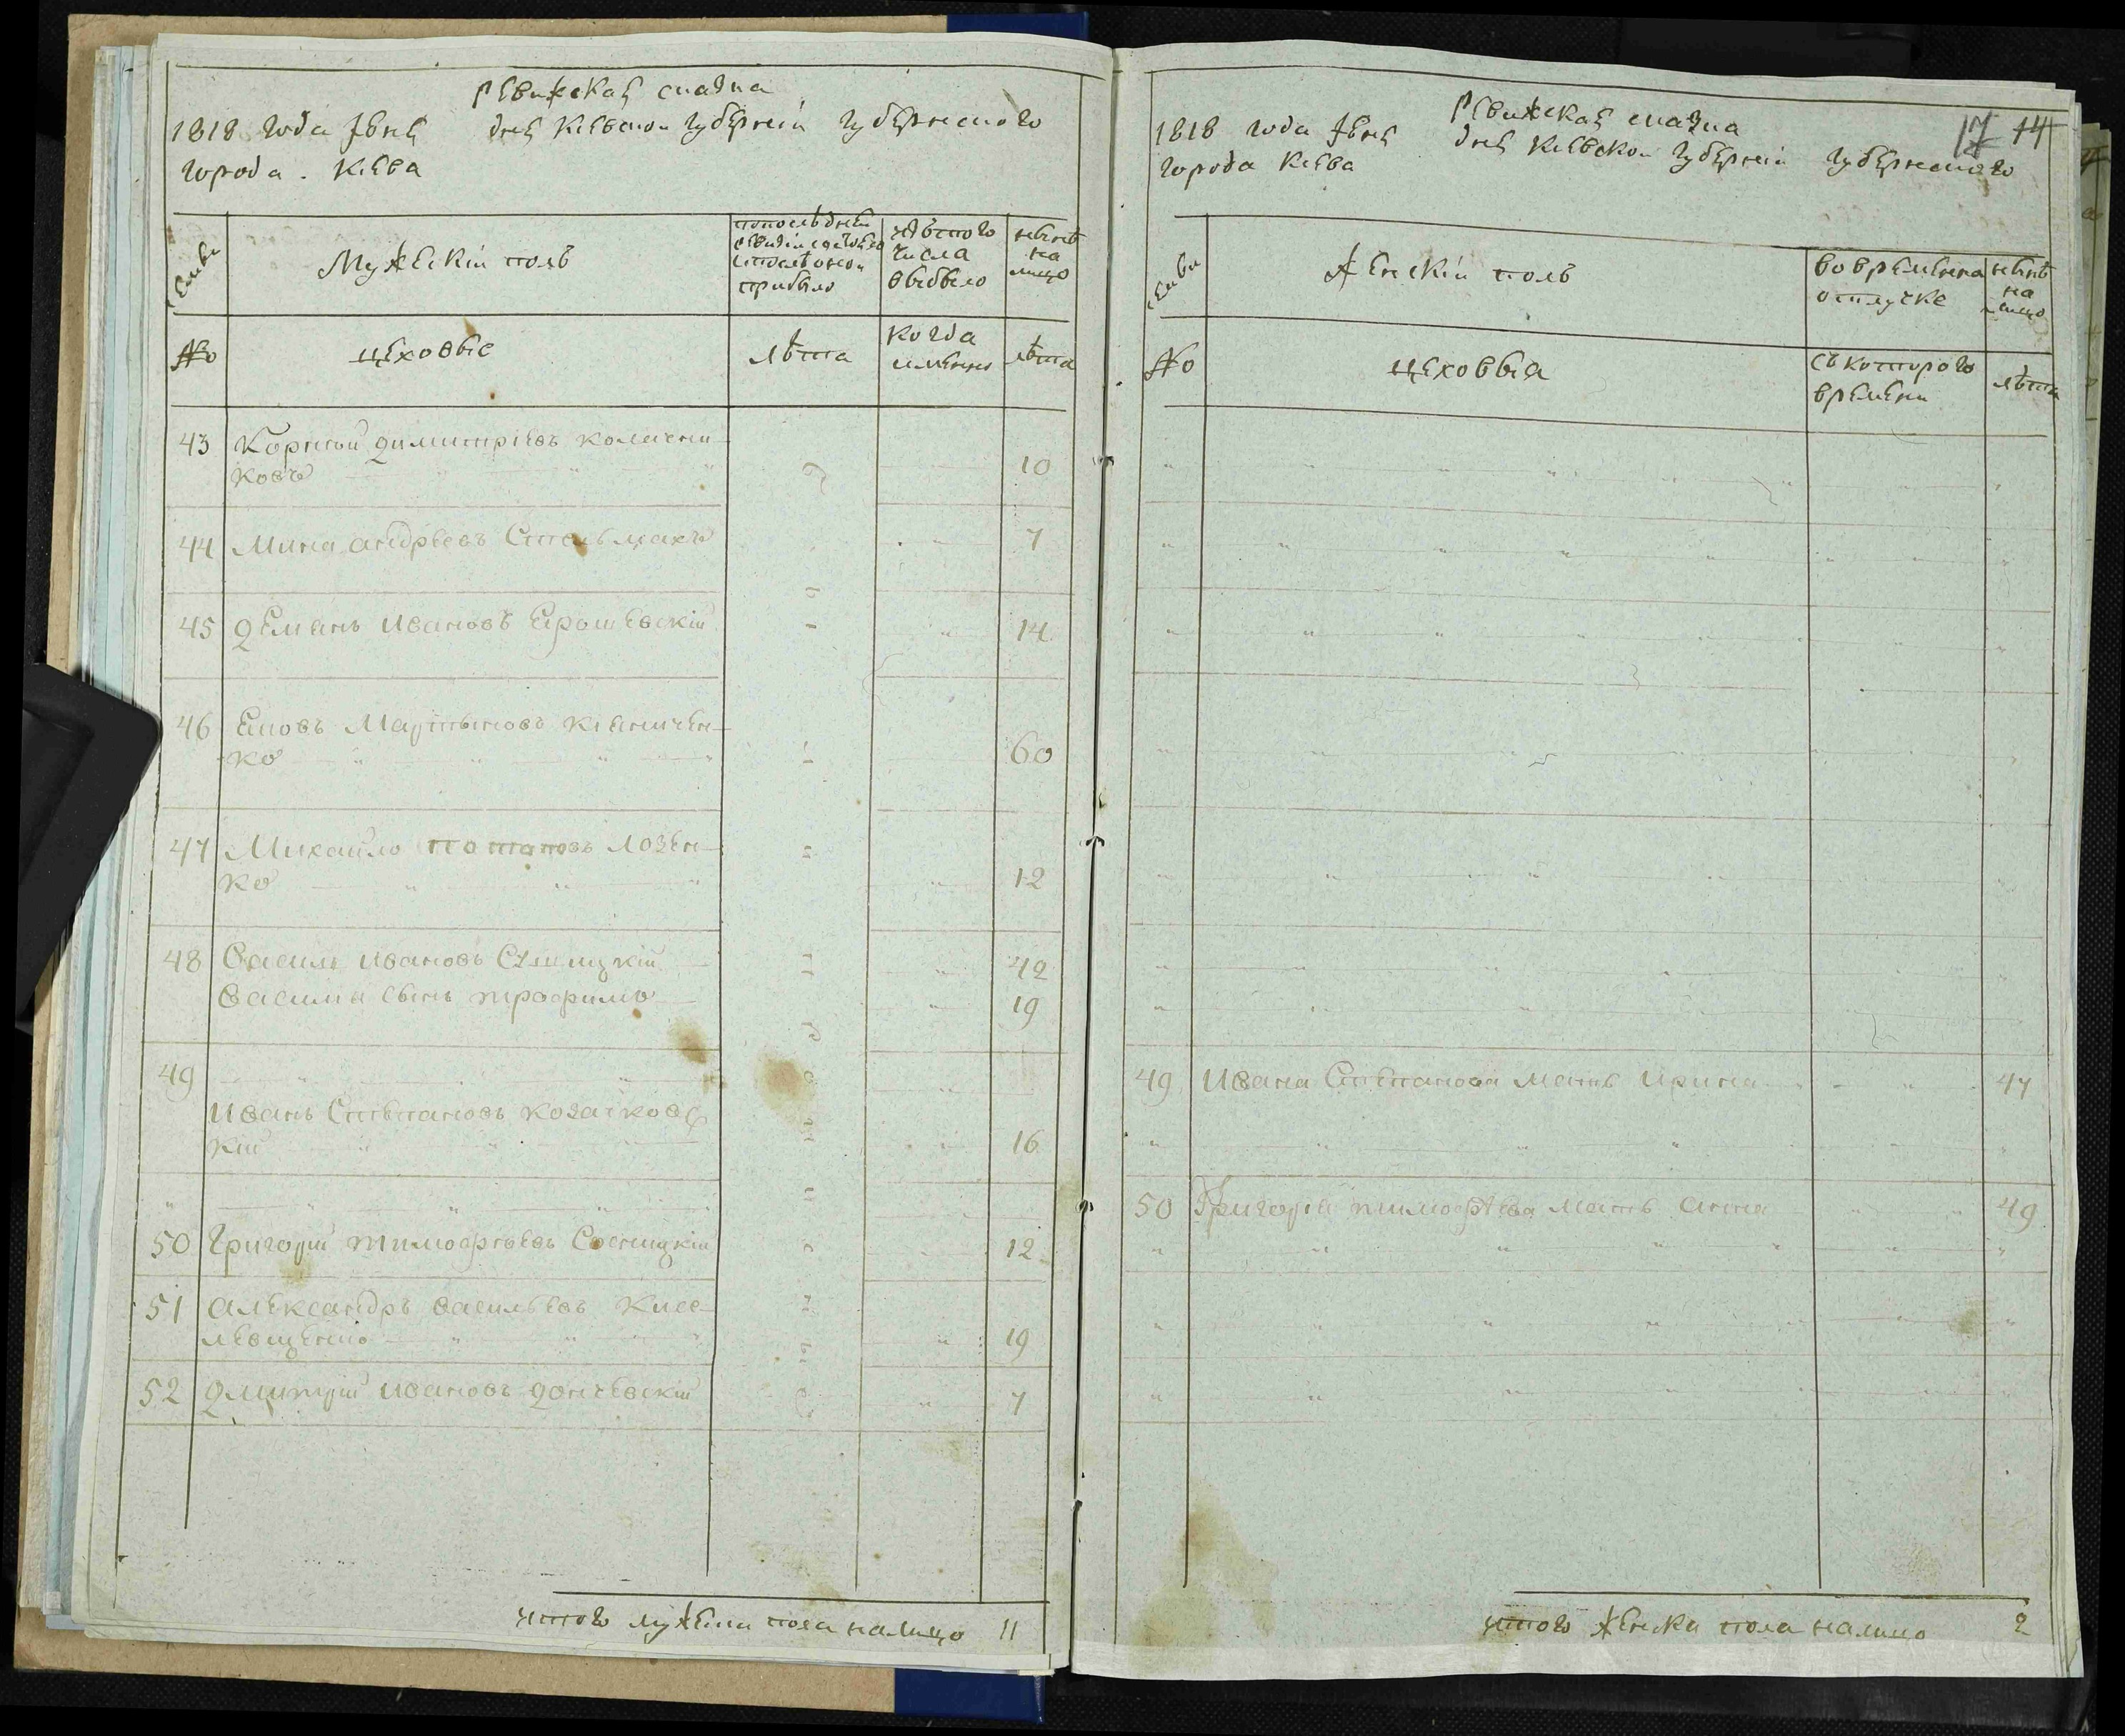 Ревижская сказка
1818 года Іюня дня Киевской губерніи губернского
города. Киева
Семьи
Мужескій полъ
попоследней
ревизіи состояло
и после оной
прибыло
из того
числа
выбыло
ныне
на
лицо
№
цеховые
лета
когда
именно
лета
43 Корней Димитріевъ Колесни-
ковъ 10
44 Мина Андреевъ Стельмахъ 7
45 Деманъ Ивановъ Ерошевскій 14
46 Еповъ Мартыновъ
ко 60
47 Михайло Потаповъ Лозен-
ко 12
48 Василь Ивановъ 42
Василья сынъ Трофимъ 19
49
Иванъ Степановъ Козачковс
кій 16
50 Григорій Тимофеевъ Сосницкій 12
51 Александръ Васильевъ Кисе-
левщенко 19
52 Дмитрій Ивановъ Дончевскій 7
итого мужеска пола налицо 11
17 14
Ревижская сказка
1818 года Іюня дня Киевской губерніи губернского
города Киева
Семьи
Женскій полъ
во временна
отлучке
ныне
на
лицо
№
цеховыя
съ которого
времени
лета
49 Ивана Степанова мать Ирина 47
50 Григорія Тимофеева мать Анна 49
итого женска пола налицо 2